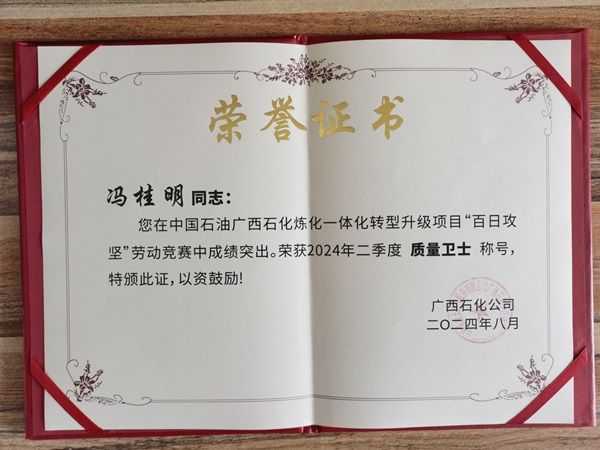 荣誉证书
冯桂明同志：
您在中国石油广西石化炼化一体化转型升级项目“百日攻
坚”劳动竞赛中成绩突出。荣获2024年二季度 质量卫士 称号，
特颁此证，以资鼓励！
广西石化公司
二〇二四年八月